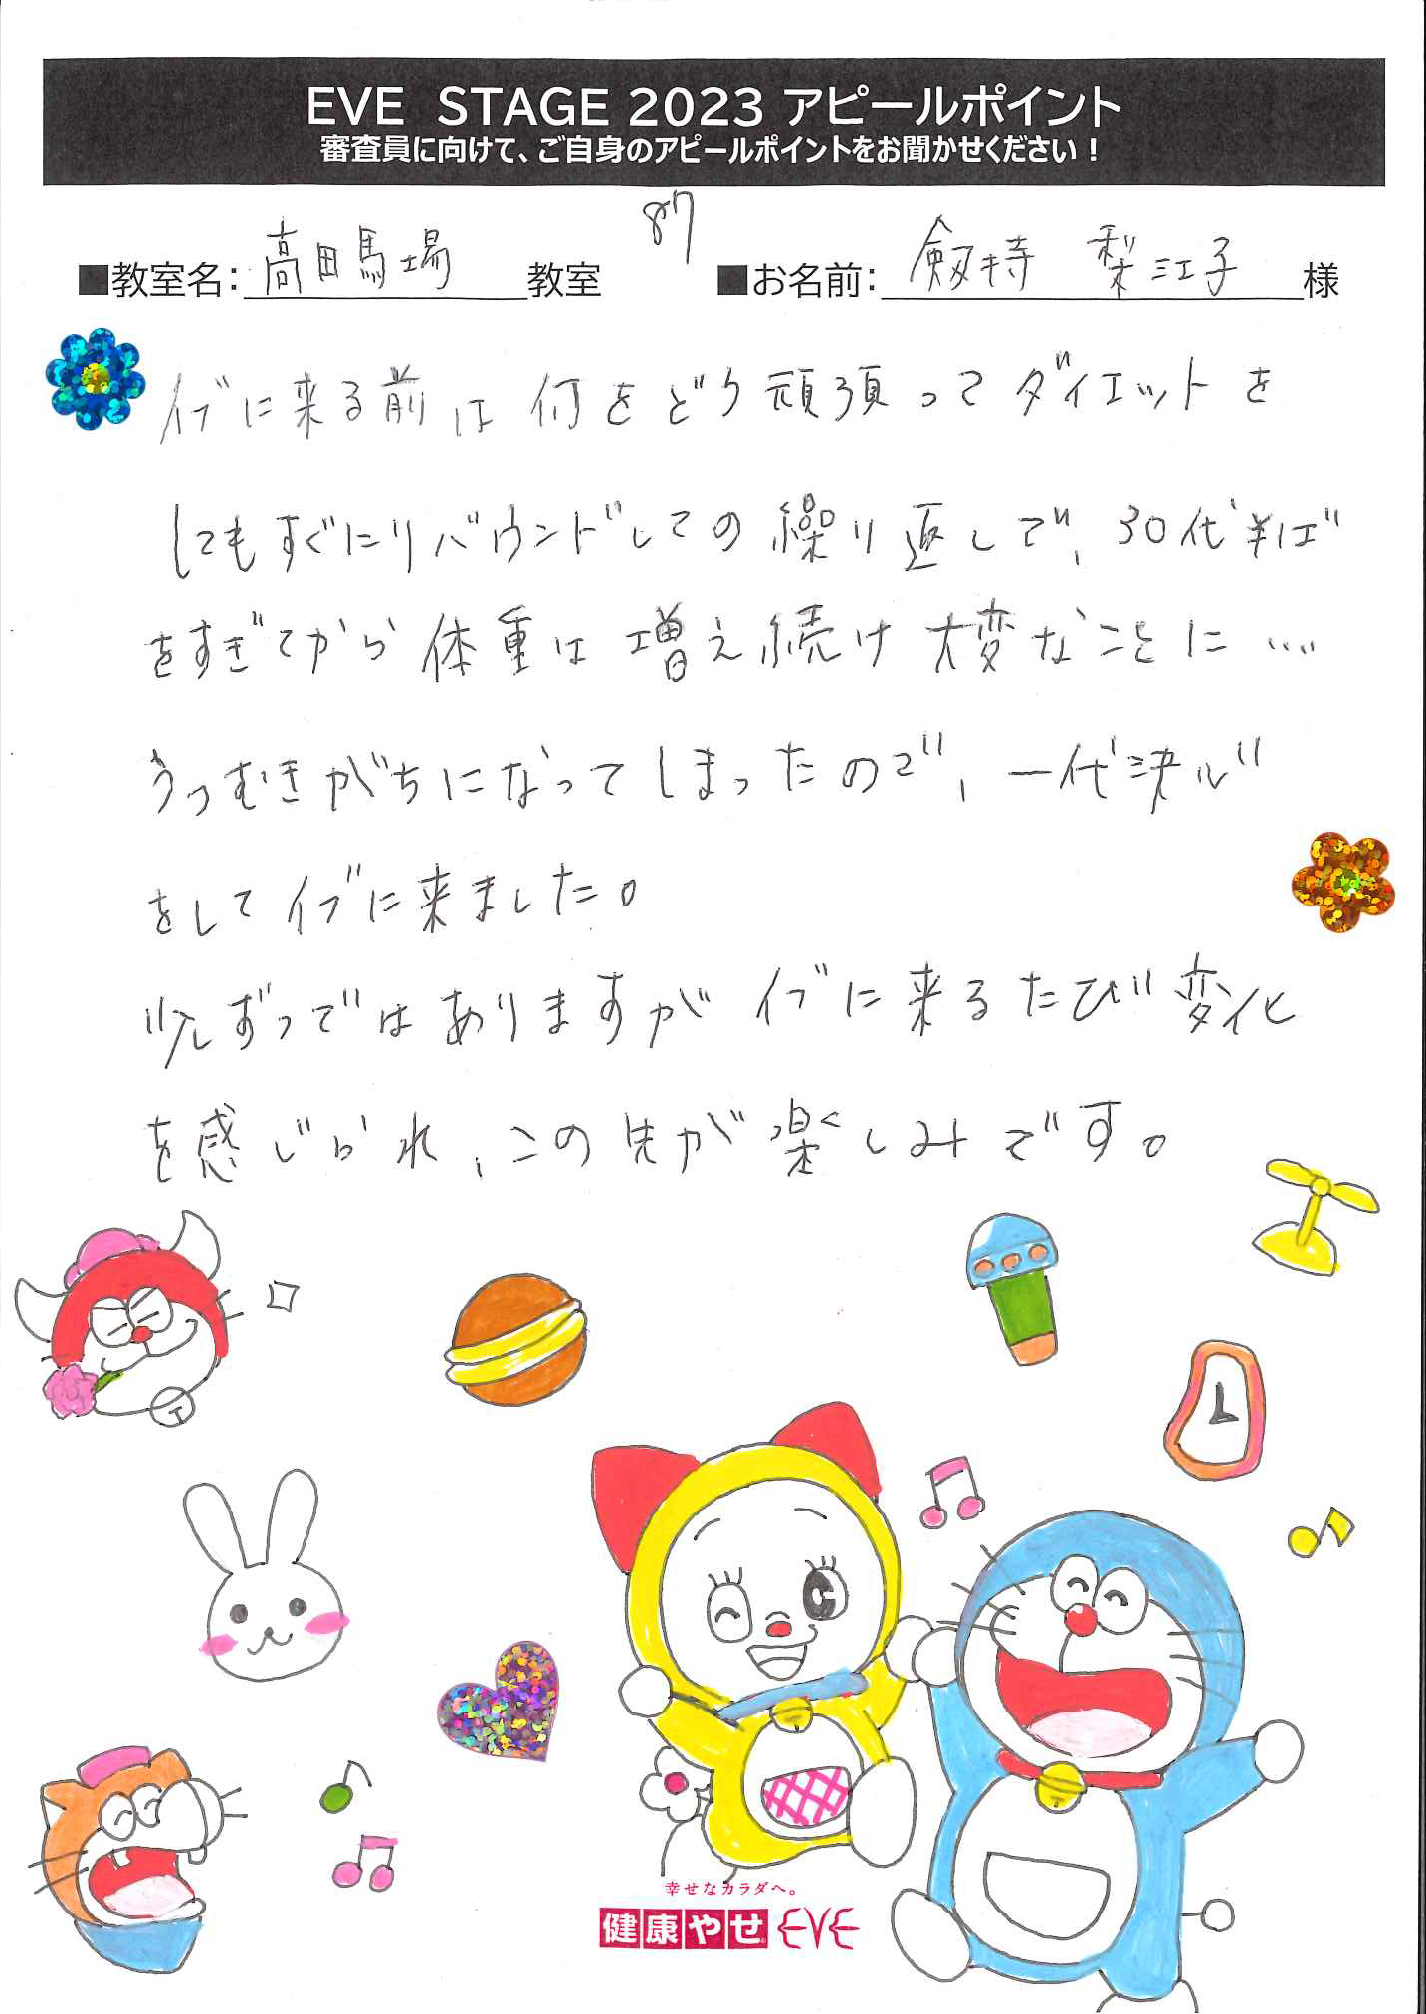 EVE STAGE 2023 アピールポイント
審査員に向けて、ご自身のアピールポイントをお聞かせください！
87
■教室名：高田馬場教室 ■お名前：劔持 梨江子様
イブに来る前は何をどう頑張ってダイエットを
してもすぐにリバウンドしての繰り返しで、30代半ば
をすぎてから体重は増え続け大変なことに…
うつむきがちになってしまったので、一代決心
をしてイブに来ました。
少しずつではありますがイブに来るたび変化
を感じられ、この先が楽しみです。
幸せなカラダへ。
健康やせ EVE